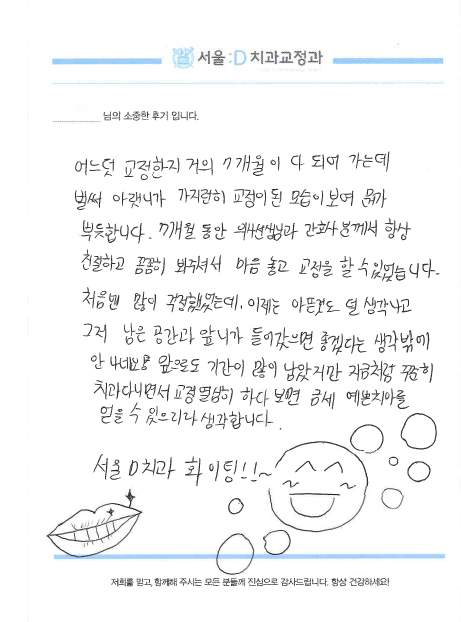 서울:D 치과교정과
님의 소중한 후기 입니다.
어느덧 교정한지 거의 7개월이 다 되어 가는데
벌써 아랫니가 가지런히 교정이 된 모습이 보여 뭔가
뿌듯합니다. 7개월 동안 의사선생님과 간호사분께서 항상
친절하고 꼼꼼히 봐주셔서 마음 놓고 교정을 할 수 있었습니다.
처음엔 많이 걱정했었는데, 이제는 아픈것도 덜 생각나고
그저 남은 공간과 앞니가 들어갔으면 좋겠다는 생각밖에
안 나네요 앞으로도 기간이 많이 남았지만 지금처럼 꾸준히
치과다니면서 교정 열심히 하다 보면 금세 예쁜치아를
얻을 수 있으리라 생각합니다.
서울 D치과 화이팅!!~
저희를 믿고, 함께해 주시는 모든 분들께 진심으로 감사드립니다. 항상 건강하세요!